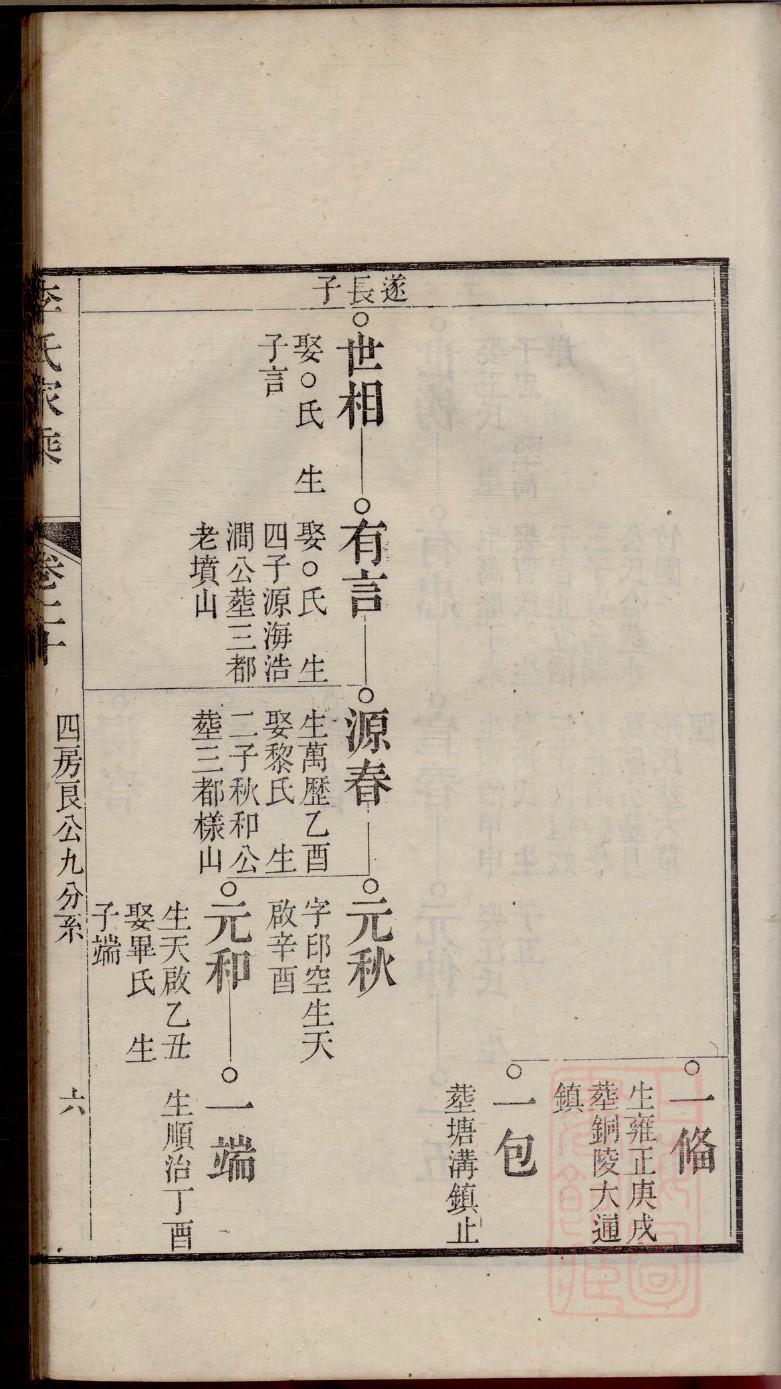 一絛
生雍正庚戌
塟銅陵大通
鎮
一包
塟塘溝鎮止
遂長子
世相
娶○氏　生
子言
有言
娶○氏　生
四子源海浩
澗公塟三都
老墳山
源春
生萬歷乙酉
娶黎氏　生
二子秋和公
塟三都樣山
元秋
字印空生天
啟辛酉
元和
生天啟乙丑
娶畢氏　生
子端
一端
生順治丁酉
李氏家乘
卷二十
四房良公九分系
六